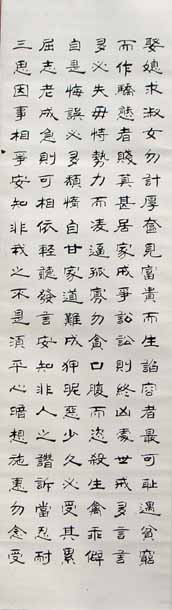 娶媳求淑女勿計厚奩見富貴而生諂容者最可恥遇貧窮
而作驕態者賤莫甚居家戒爭訟訟則終凶處世戒多言言
多必失毋恃勢力而凌逼孤寡勿貪口腹而恣殺生禽乖僻
自是悔誤必多頹惰自甘家道難成狎昵惡少久必受其累
屈志老成急則可相依輕聽發言安知非人之譖訴當忍耐
三思因事相爭安知非我之不是須平心暗想施惠勿念受